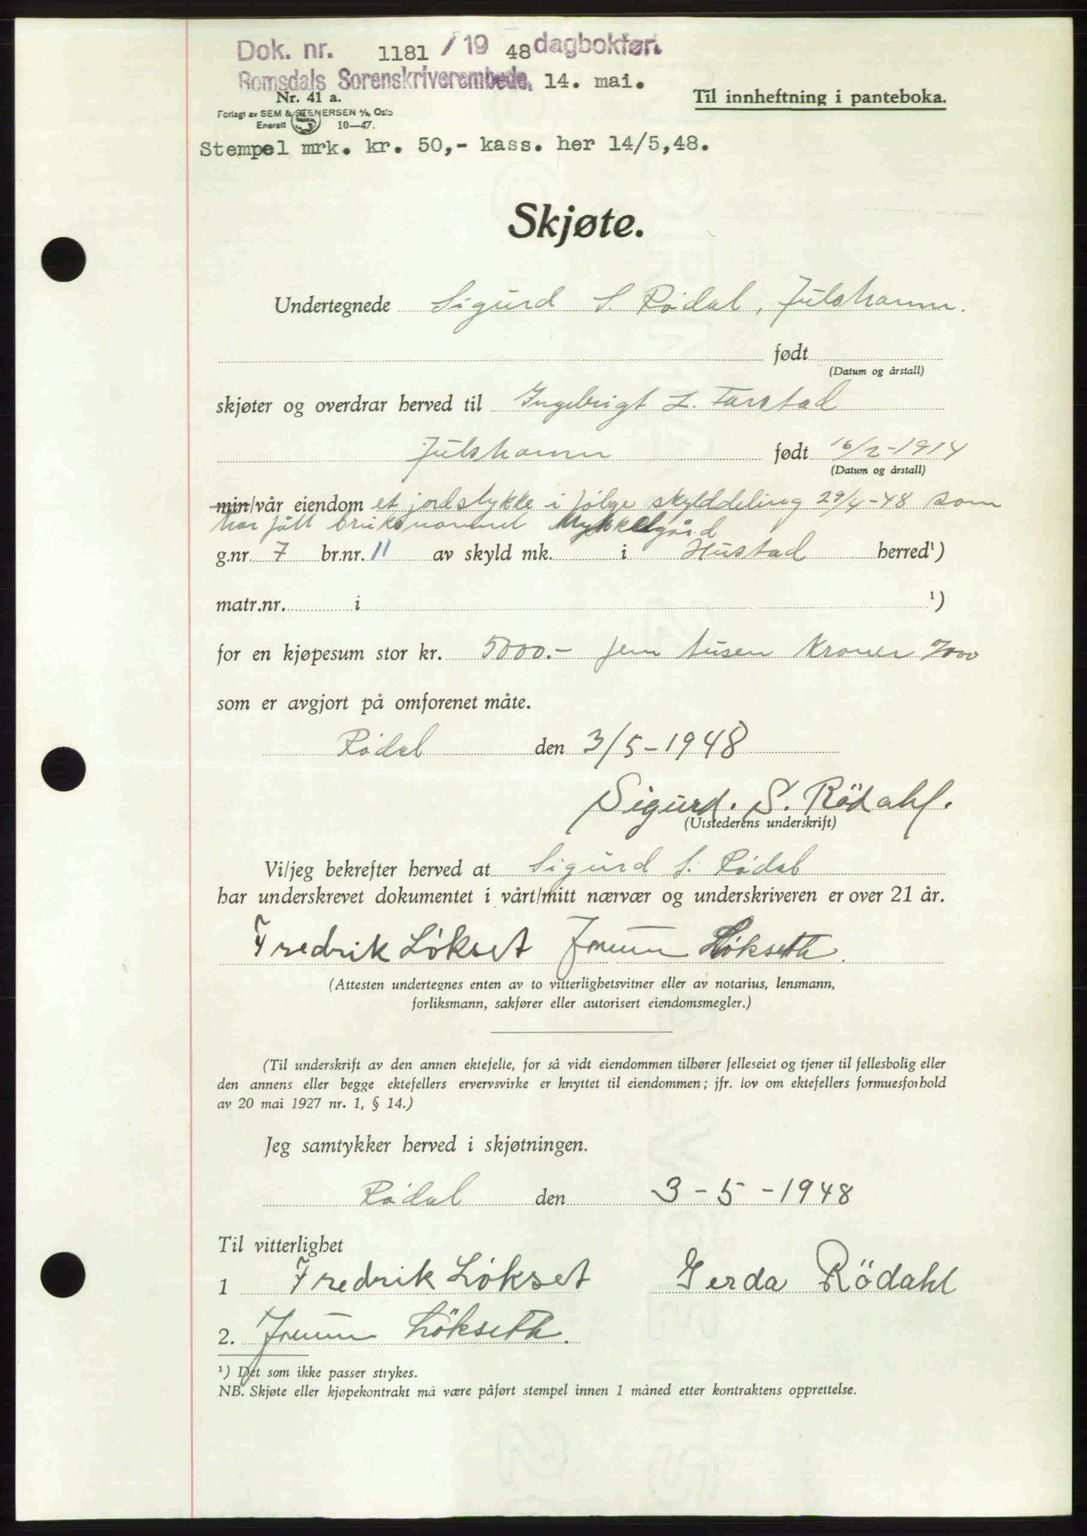 Dok. nr. 1181 / 19 48 dagbokført
Romsdals Sorenskriverembede, 14. mai.
Nr. 41 a.
Til innheftning i panteboka.
Forlagt av SEM & STENERSEN A/S, Oslo
Enerett 10—47.
Stempel mrk. kr. 50,- kass. her 14/5,48.
Skjøte.
Undertegnede Sigurd S. Rødal, Julshamn.
født
(Datum og årstall)
skjøter og overdrar herved til Ingebrigt L. Farstad
Julshamn født 16/2-1914
(Datum og årstall)
min/vår eiendom et jordstykke i følge skylddeling 29/4-48 som
har fått bruksnavnet Mykkelgård
g.nr. 7 br.nr. 11 av skyld mk. i Hustad herred¹)
matr.nr. i ¹)
for en kjøpesum stor kr. 5000.- fem tusen kroner
som er avgjort på omforenet måte.
Rødal den 3/5-1948
Sigurd. S. Rödahl.
(Utstederens underskrift)
Vi/jeg bekrefter herved at Sigurd S. Rødal
har underskrevet dokumentet i vårt/mitt nærvær og underskriveren er over 21 år.
Fredrik Løkset Løkseth.
(Attesten undertegnes enten av to vitterlighetsvitner eller av notarius, lensmann,
forliksmann, sakfører eller autorisert eiendomsmegler.)
(Til underskrift av den annen ektefelle, for så vidt eiendommen tilhører felleseiet og tjener til fellesbolig eller
den annens eller begge ektefellers ervervsvirke er knyttet til eiendommen; jfr. lov om ektefellers formuesforhold
av 20 mai 1927 nr. 1, § 14.)
Jeg samtykker herved i skjøtningen.
Rødal den 3-5-1948
Til vitterlighet
1 Fredrik Løkset Gerda Rödahl
2. Lökseth.
¹) Det som ikke passer strykes.
NB. Skjøte eller kjøpekontrakt må være påført stempel innen 1 måned etter kontraktens opprettelse.